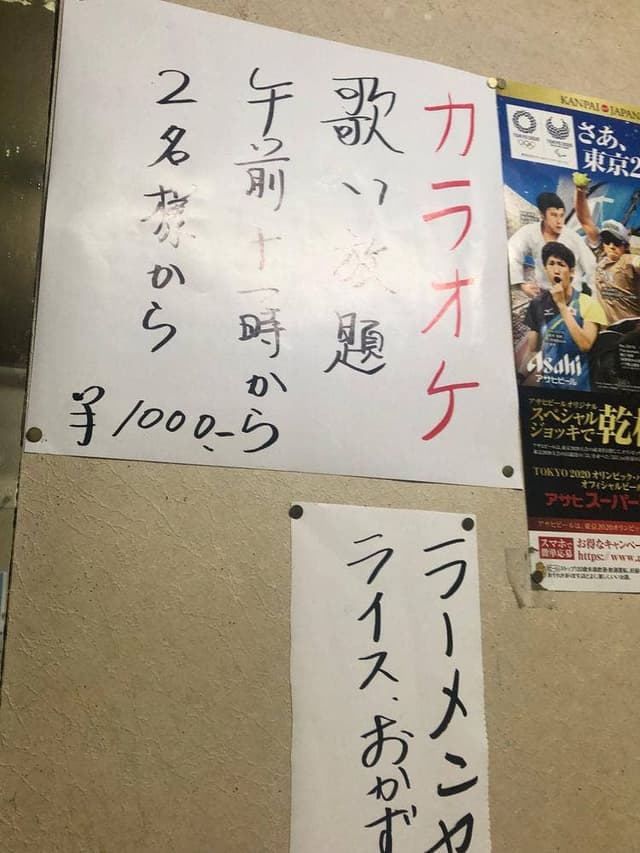 カラオケ
歌い放題
午前十一時から
2名様から
¥1000.-
ラーメンセ
ライス、おかず
KANPAI JAPAN
TOKYO 2020
さあ、
東京2
Asahi
アサヒビール
アサヒビールオリジナル
スペシャル
ジョッキで乾
TOKYO 2020 オリンピック・パ
オフィシャルビール
アサヒスーパー
アサヒビールは、東京2020オリンピ
スマホで
簡単応募
お得なキャンペー
https://www.a